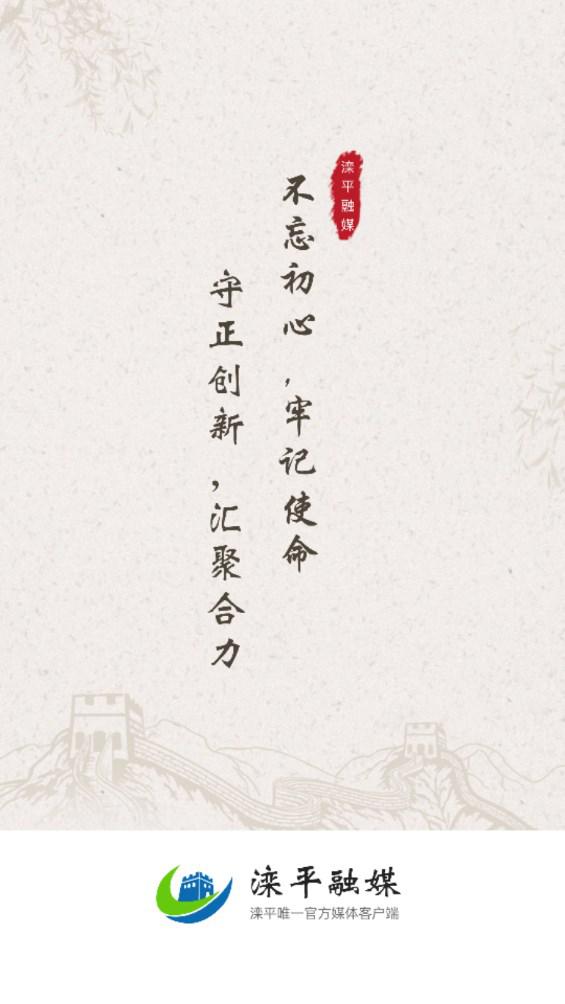 滦平融媒
不忘初心，牢记使命
守正创新，汇聚合力
滦平融媒
滦平唯一官方媒体客户端